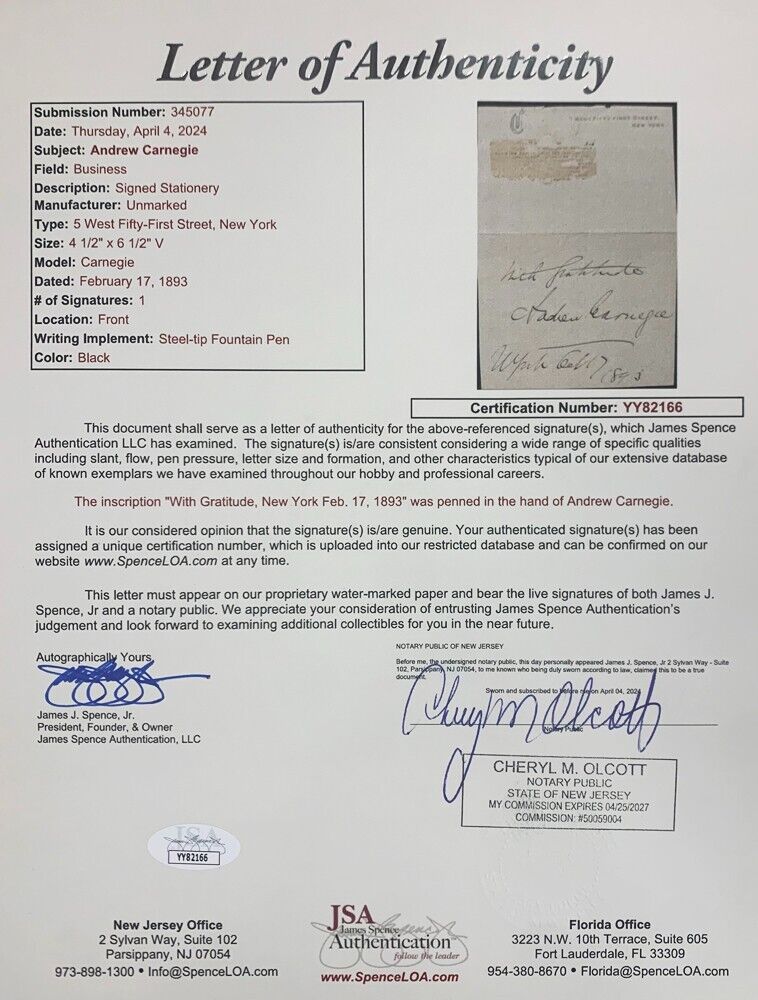 Letter of Authenticity
Submission Number: 345077
Date: Thursday, April 4, 2024
Subject: Andrew Carnegie
Field: Business
Description: Signed Stationery
Manufacturer: Unmarked
Type: 5 West Fifty-First Street, New York
Size: 4 1/2" x 6 1/2" V
Model: Carnegie
Dated: February 17, 1893
# of Signatures: 1
Location: Front
Writing Implement: Steel-tip Fountain Pen
Color: Black
C
WEST FIFTY-FIRST STREET,
NEW YORK.
With Gratitude
Andrew Carnegie
1893
Certification Number: YY82166
This document shall serve as a letter of authenticity for the above-referenced signature(s), which James Spence
Authentication LLC has examined. The signature(s) is/are consistent considering a wide range of specific qualities
including slant, flow, pen pressure, letter size and formation, and other characteristics typical of our extensive database
of known exemplars we have examined throughout our hobby and professional careers.
The inscription "With Gratitude, New York Feb. 17, 1893" was penned in the hand of Andrew Carnegie.
It is our considered opinion that the signature(s) is/are genuine. Your authenticated signature(s) has been
assigned a unique certification number, which is uploaded into our restricted database and can be confirmed on our
website www.SpenceLOA.com at any time.
This letter must appear on our proprietary water-marked paper and bear the live signatures of both James J.
Spence, Jr and a notary public. We appreciate your consideration of entrusting James Spence Authentication's
judgement and look forward to examining additional collectibles for you in the near future.
Autographically Yours,
James J. Spence, Jr.
President, Founder, & Owner
James Spence Authentication, LLC
NOTARY PUBLIC OF NEW JERSEY
Before me, the undersigned notary public, this day personally appeared James J. Spence, Jr 2 Sylvan Way - Suite
102, Parsippany, NJ 07054, to me known who being duly sworn according to law, claims this to be a true
document.
Sworn and subscribed to before me on April 04, 2024
Cheryl M Olcott
Notary Public
CHERYL M. OLCOTT
NOTARY PUBLIC
STATE OF NEW JERSEY
MY COMMISSION EXPIRES 04/25/2027
COMMISSION: #50059004
JSA
YY82166
New Jersey Office
2 Sylvan Way, Suite 102
Parsippany, NJ 07054
973-898-1300 • Info@SpenceLOA.com
JSA
James Spence
Authentication
follow the leader
www.SpenceLOA.com
Florida Office
3223 N.W. 10th Terrace, Suite 605
Fort Lauderdale, FL 33309
954-380-8670 • Florida@SpenceLOA.com